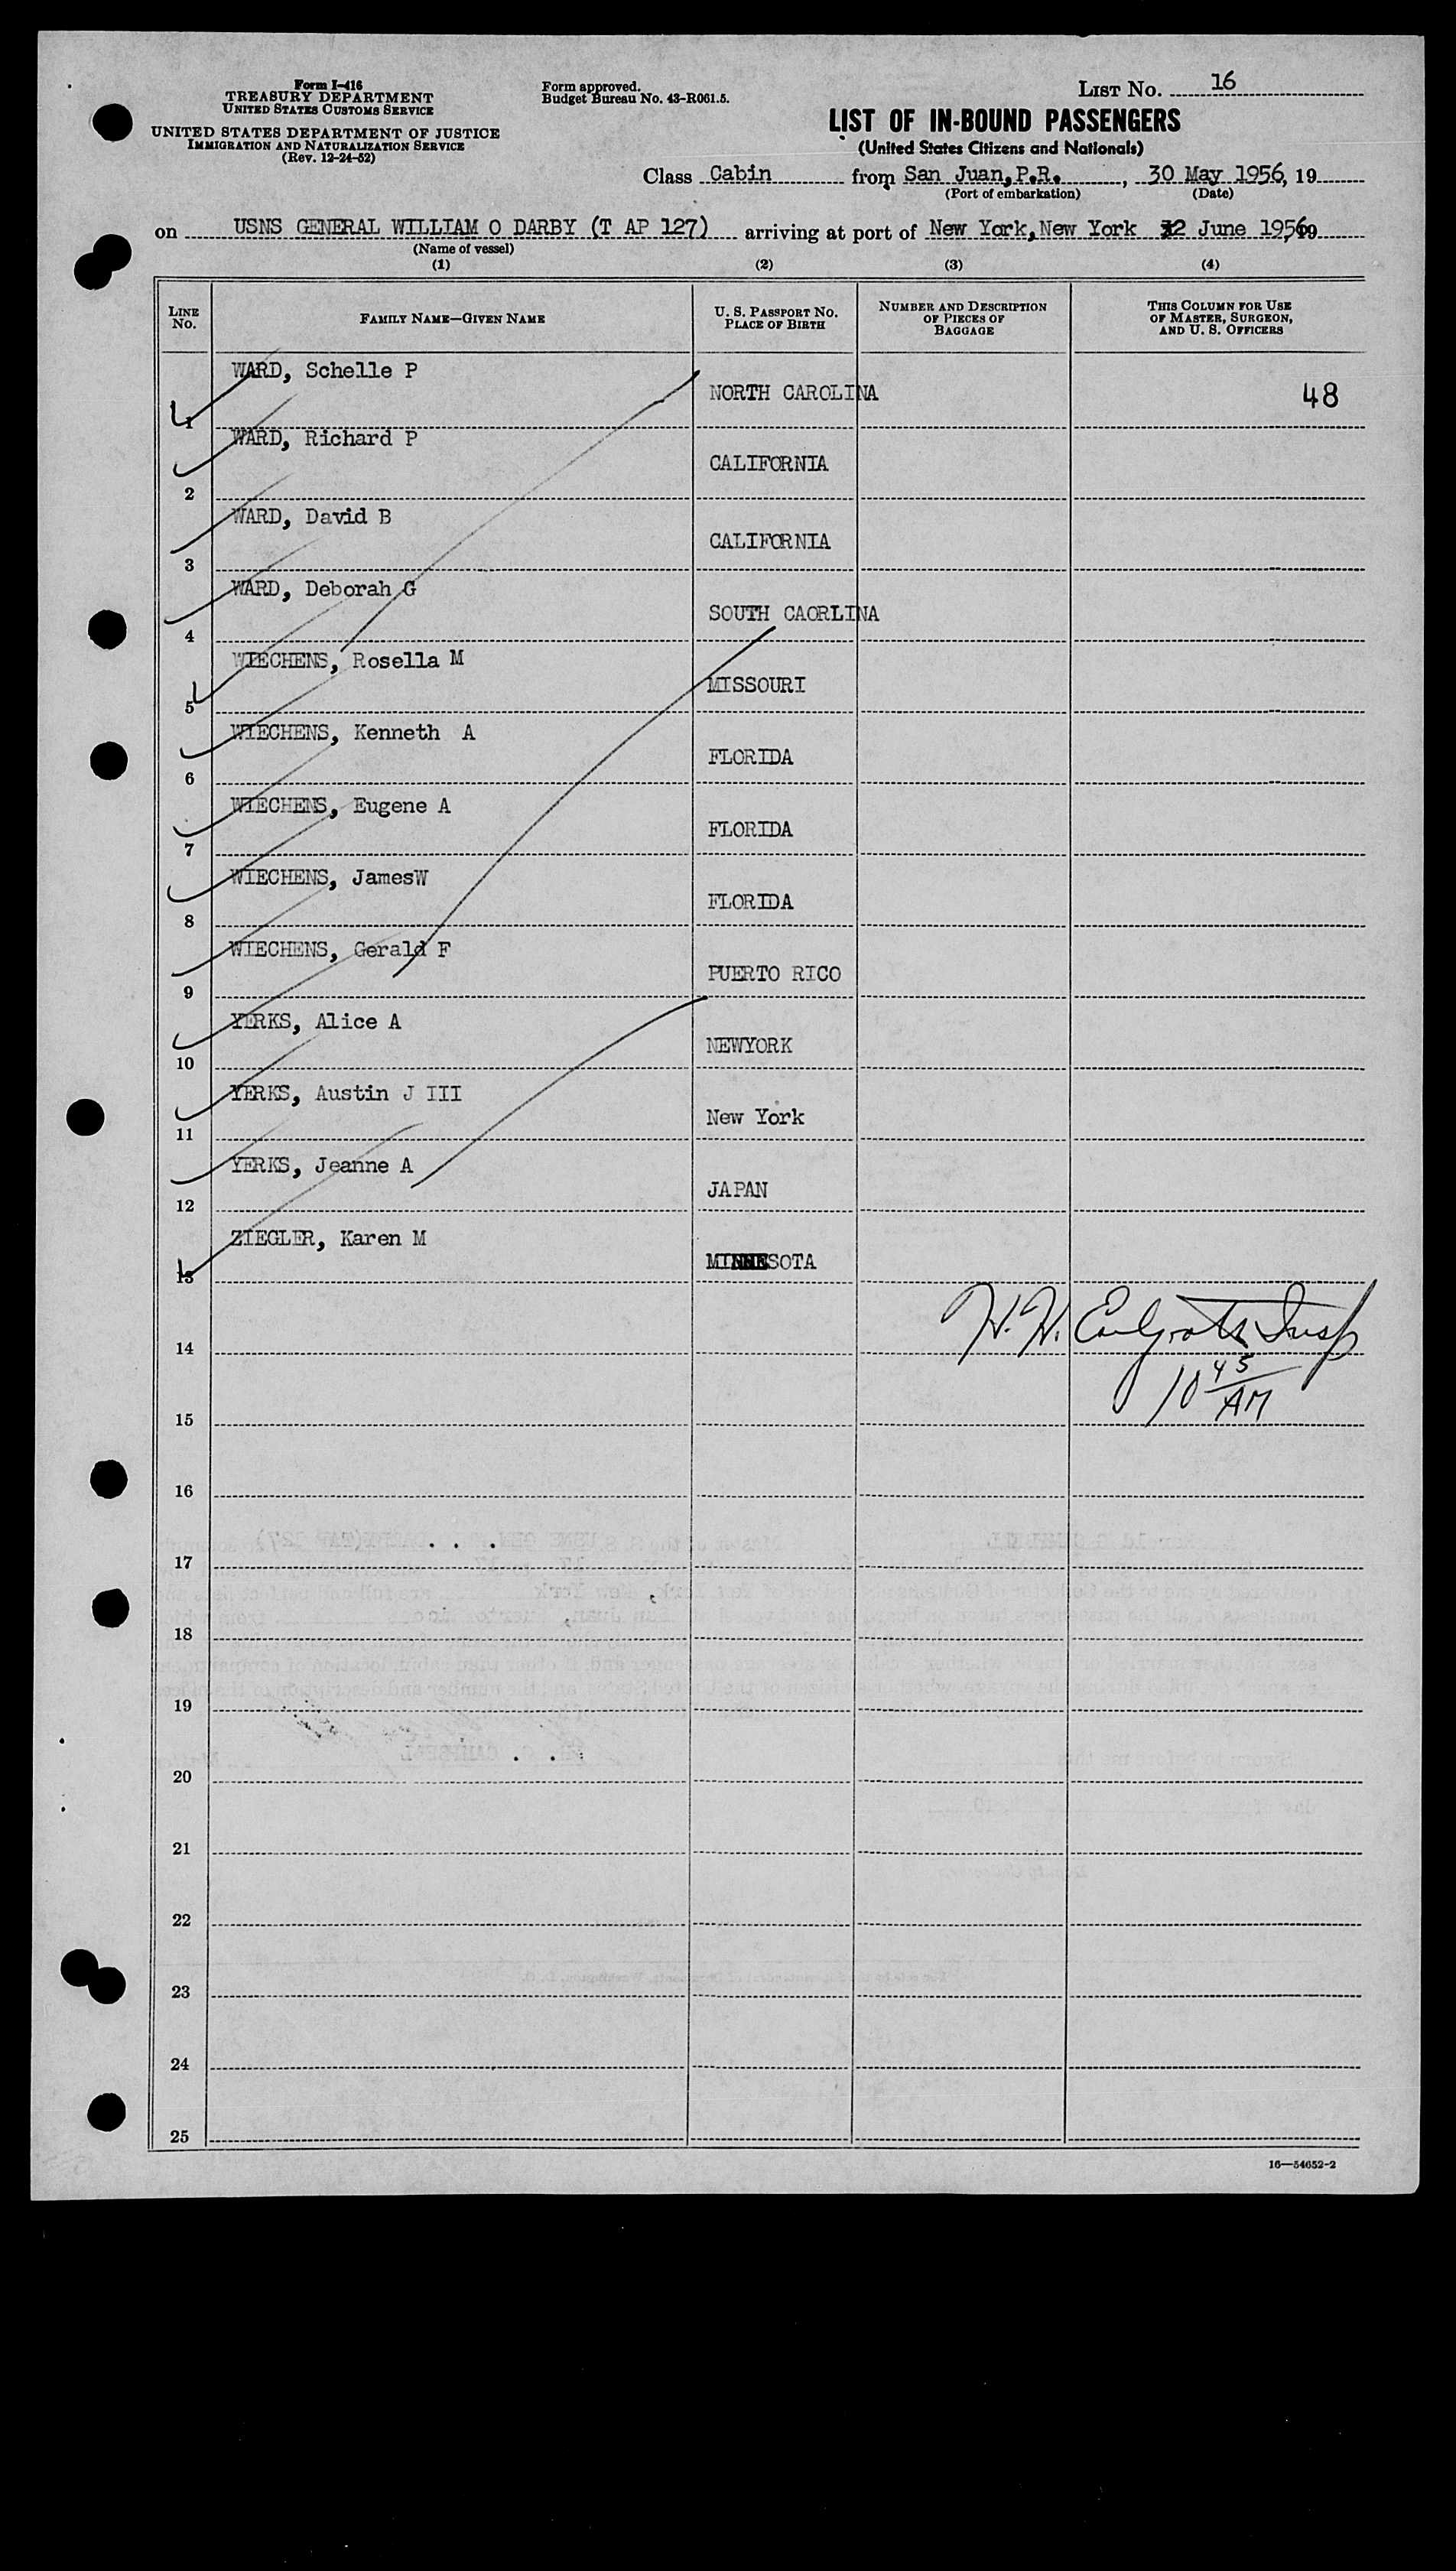 Form I-416
TREASURY DEPARTMENT
UNITED STATES CUSTOMS SERVICE
UNITED STATES DEPARTMENT OF JUSTICE
IMMIGRATION AND NATURALIZATION SERVICE
(Rev. 12-24-52)
Form approved.
Budget Bureau No. 43-R061.5.
LIST NO. 16
LIST OF IN-BOUND PASSENGERS
(United States Citizens and Nationals)
Class Cabin from San Juan, P.R., 30 May 1956, 19
(Port of embarkation) (Date)
on USNS GENERAL WILLIAM O DARBY (T AP 127) arriving at port of New York, New York 2 June 1956, 19
(Name of vessel)
(1) (2) (3) (4)
LINE NO. FAMILY NAME—GIVEN NAME U. S. PASSPORT NO. PLACE OF BIRTH NUMBER AND DESCRIPTION OF PIECES OF BAGGAGE THIS COLUMN FOR USE OF MASTER, SURGEON, AND U. S. OFFICERS
1 WARD, Schelle P NORTH CAROLINA 48
2 WARD, Richard P CALIFORNIA
3 WARD, David B CALIFORNIA
4 WARD, Deborah G SOUTH CAORLINA
5 WIECHENS, Rosella M MISSOURI
6 WIECHENS, Kenneth A FLORIDA
7 WIECHENS, Eugene A FLORIDA
8 WIECHENS, JamesW FLORIDA
9 WIECHENS, Gerald F PUERTO RICO
10 YERKS, Alice A NEWYORK
11 YERKS, Austin J III New York
12 YERKS, Jeanne A JAPAN
13 ZIEGLER, Karen M MINNESOTA
H. H. Insp
14
10 45 AM
15
16
17
18
19
20
21
22
23
24
25
16—54652-2